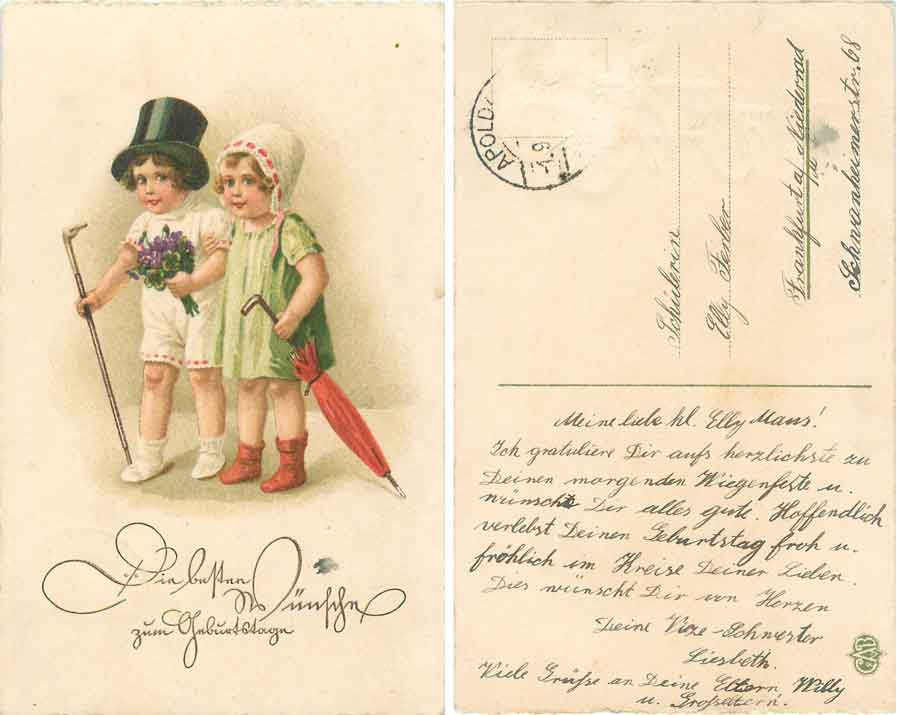 Die besten
Wünsche
zum Geburtstage
APOLD
Schülerin
Elly Ferber
Frankfurt a/ Niederrad
Schwanheimerstr. 68
Meine liebe kl. Elly Maus!
Ich gratuliere Dir aufs herzlichste zu
Deinen morgenden Wiegenfeste u.
wünscht Dir alles gute. Hoffendlich
verlebst Deinen Geburtstag froh u.
fröhlich im Kreise Deiner Lieben.
Dies wünscht Dir von Herzen
Deine Vize-Schwester
Liesbeth.
Viele Grüße an Deine Eltern, Willy
u. Großeltern.